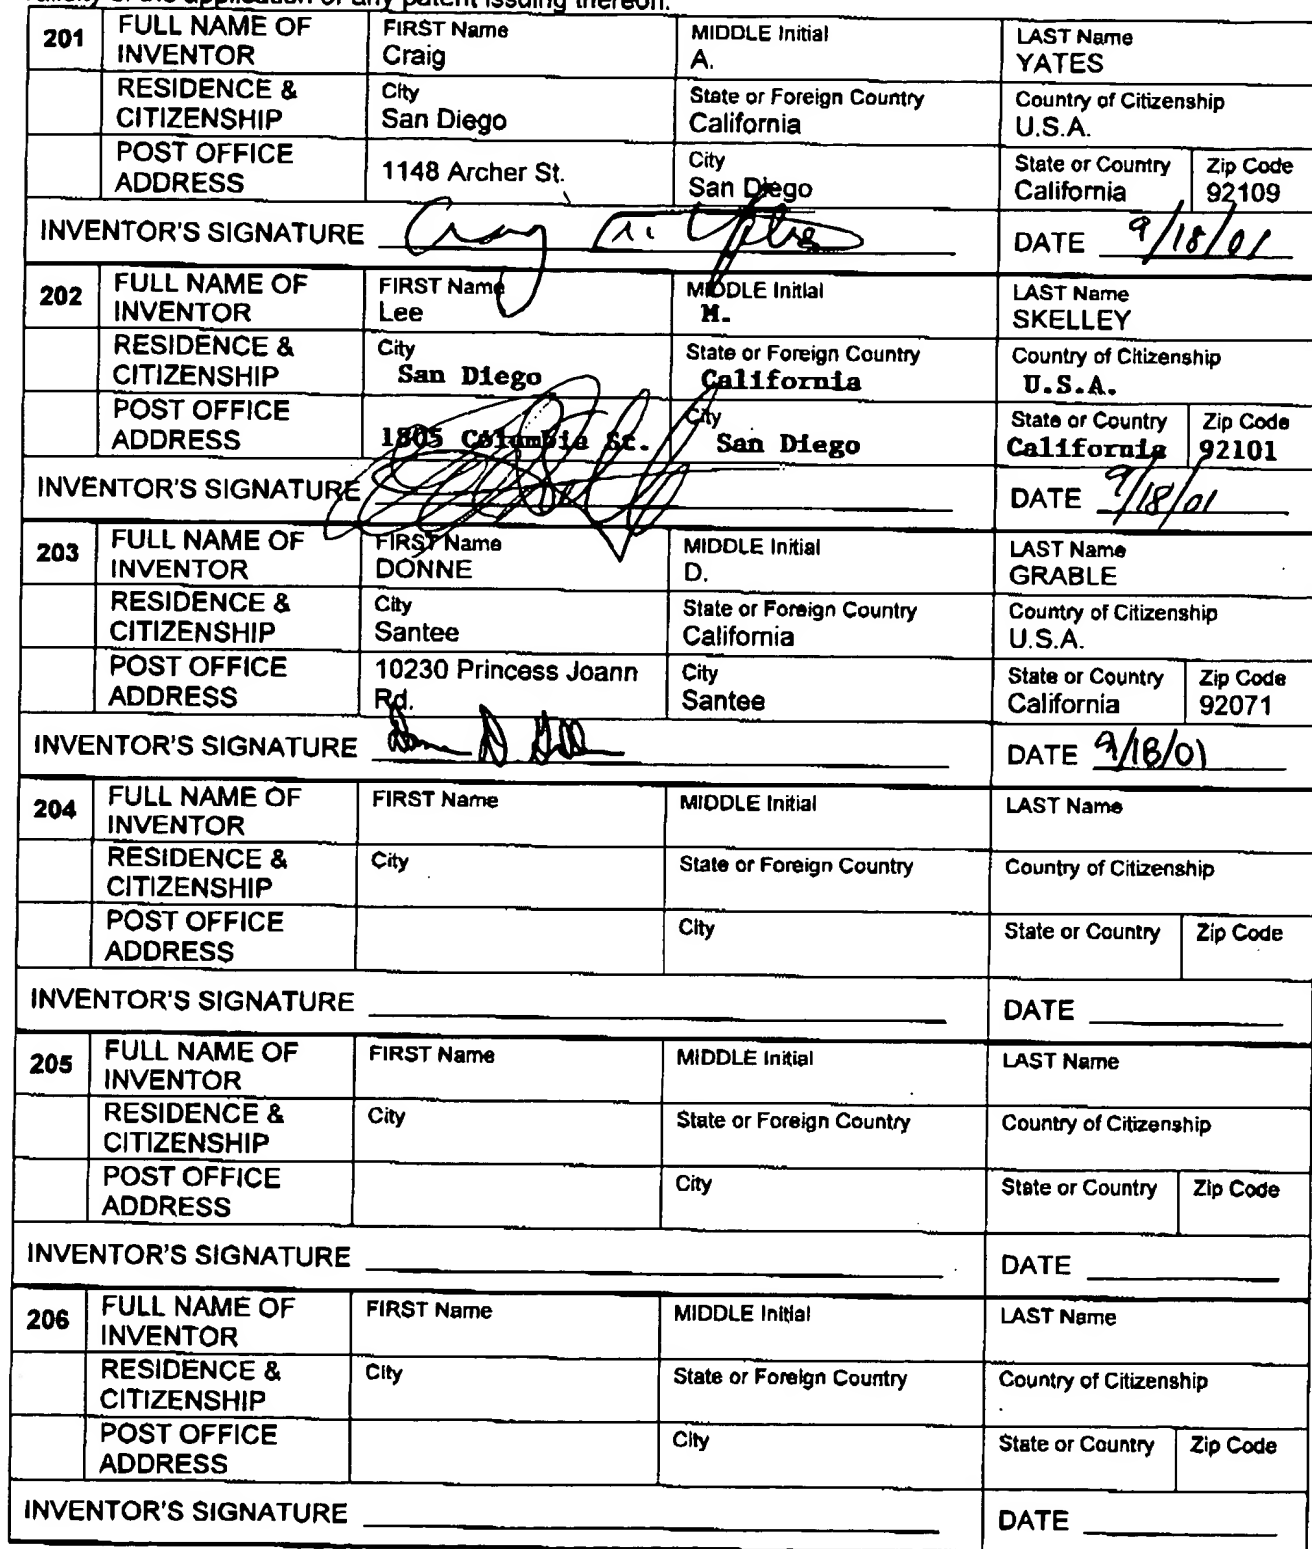 validity of the application or any patent issuing thereon.
201 FULL NAME OF INVENTOR FIRST Name Craig MIDDLE Initial A. LAST Name YATES
RESIDENCE & CITIZENSHIP City San Diego State or Foreign Country California Country of Citizenship U.S.A.
POST OFFICE ADDRESS 1148 Archer St. City San Diego State or Country California Zip Code 92109
INVENTOR'S SIGNATURE Craig A. Yates DATE 9/18/01
202 FULL NAME OF INVENTOR FIRST Name Lee MIDDLE Initial M. LAST Name SKELLEY
RESIDENCE & CITIZENSHIP City San Diego State or Foreign Country California Country of Citizenship U.S.A.
POST OFFICE ADDRESS 1805 Columbia St. City San Diego State or Country California Zip Code 92101
INVENTOR'S SIGNATURE DATE 9/18/01
203 FULL NAME OF INVENTOR FIRST Name DONNE MIDDLE Initial D. LAST Name GRABLE
RESIDENCE & CITIZENSHIP City Santee State or Foreign Country California Country of Citizenship U.S.A.
POST OFFICE ADDRESS 10230 Princess Joann Rd. City Santee State or Country California Zip Code 92071
INVENTOR'S SIGNATURE DATE 9/18/01
204 FULL NAME OF INVENTOR FIRST Name MIDDLE Initial LAST Name
RESIDENCE & CITIZENSHIP City State or Foreign Country Country of Citizenship
POST OFFICE ADDRESS City State or Country Zip Code
INVENTOR'S SIGNATURE DATE
205 FULL NAME OF INVENTOR FIRST Name MIDDLE Initial LAST Name
RESIDENCE & CITIZENSHIP City State or Foreign Country Country of Citizenship
POST OFFICE ADDRESS City State or Country Zip Code
INVENTOR'S SIGNATURE DATE
206 FULL NAME OF INVENTOR FIRST Name MIDDLE Initial LAST Name
RESIDENCE & CITIZENSHIP City State or Foreign Country Country of Citizenship
POST OFFICE ADDRESS City State or Country Zip Code
INVENTOR'S SIGNATURE DATE